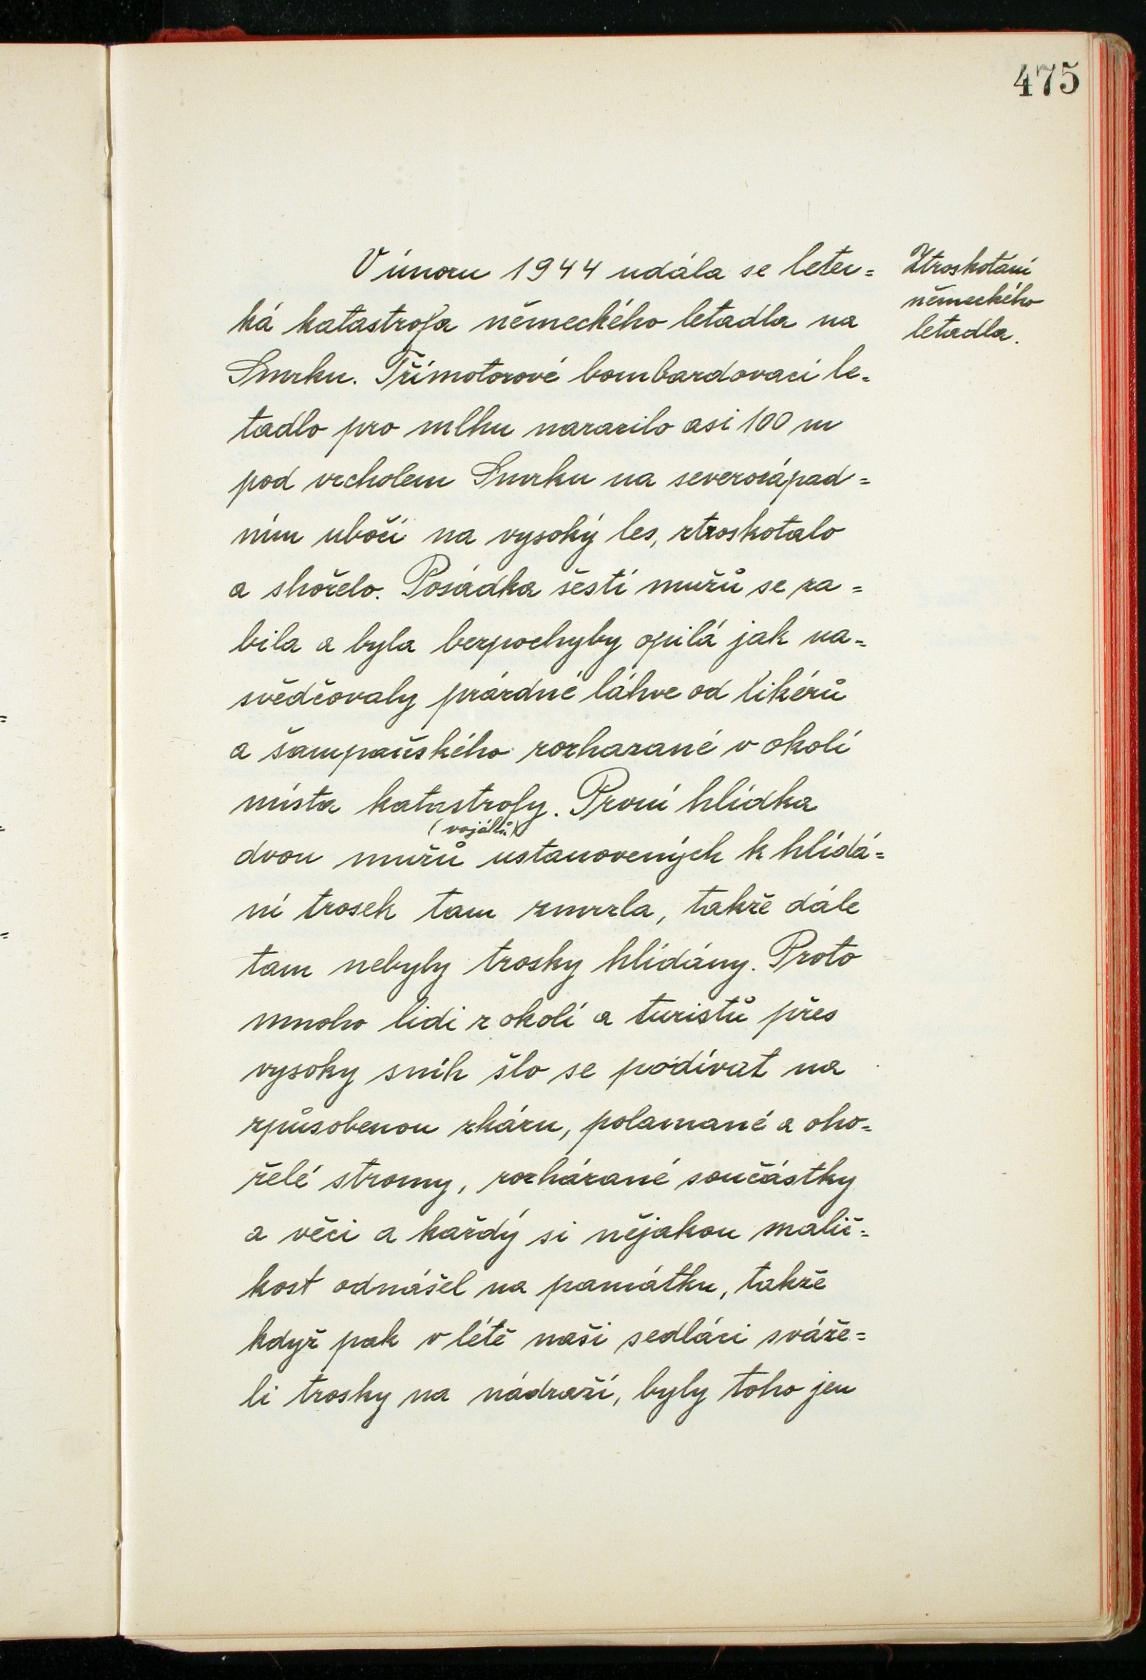 475
V únoru 1944 udála se letec=
ká katastrofa německého letadla na
Smrku. Třímotorové bombardovací le=
tadlo pro mlhu narazilo asi 100 m
pod vrcholem Smrku na severozápad=
ním uboči na vysoký les, ztroskotalo
a shořelo. Posádka šesti mužů se za=
bila a byla bezpochyby opilá jak na=
svědčovaly prázdné láhve od likérů
a šampaňského rozházané v okolí
místa katastrofy. První hlídka
(vojáků)
dvou mužů ustanovených k hlídá=
ní trosek tam zmrzla, takže dále
tam nebyly trosky hlídány. Proto
mnoho lidi z okolí a turistů přes
vysoky sníh šlo se podívat na
způsobenou zkázu, polamané a oho=
řelé stromy, rozházané součástky
a věci a každý si nějakou malič=
kost odnášel na památku, takže
když pak v létě naši sedláci sváže=
li trosky na nádraží, byly toho jen
Ztroskotání
německého
letadla.